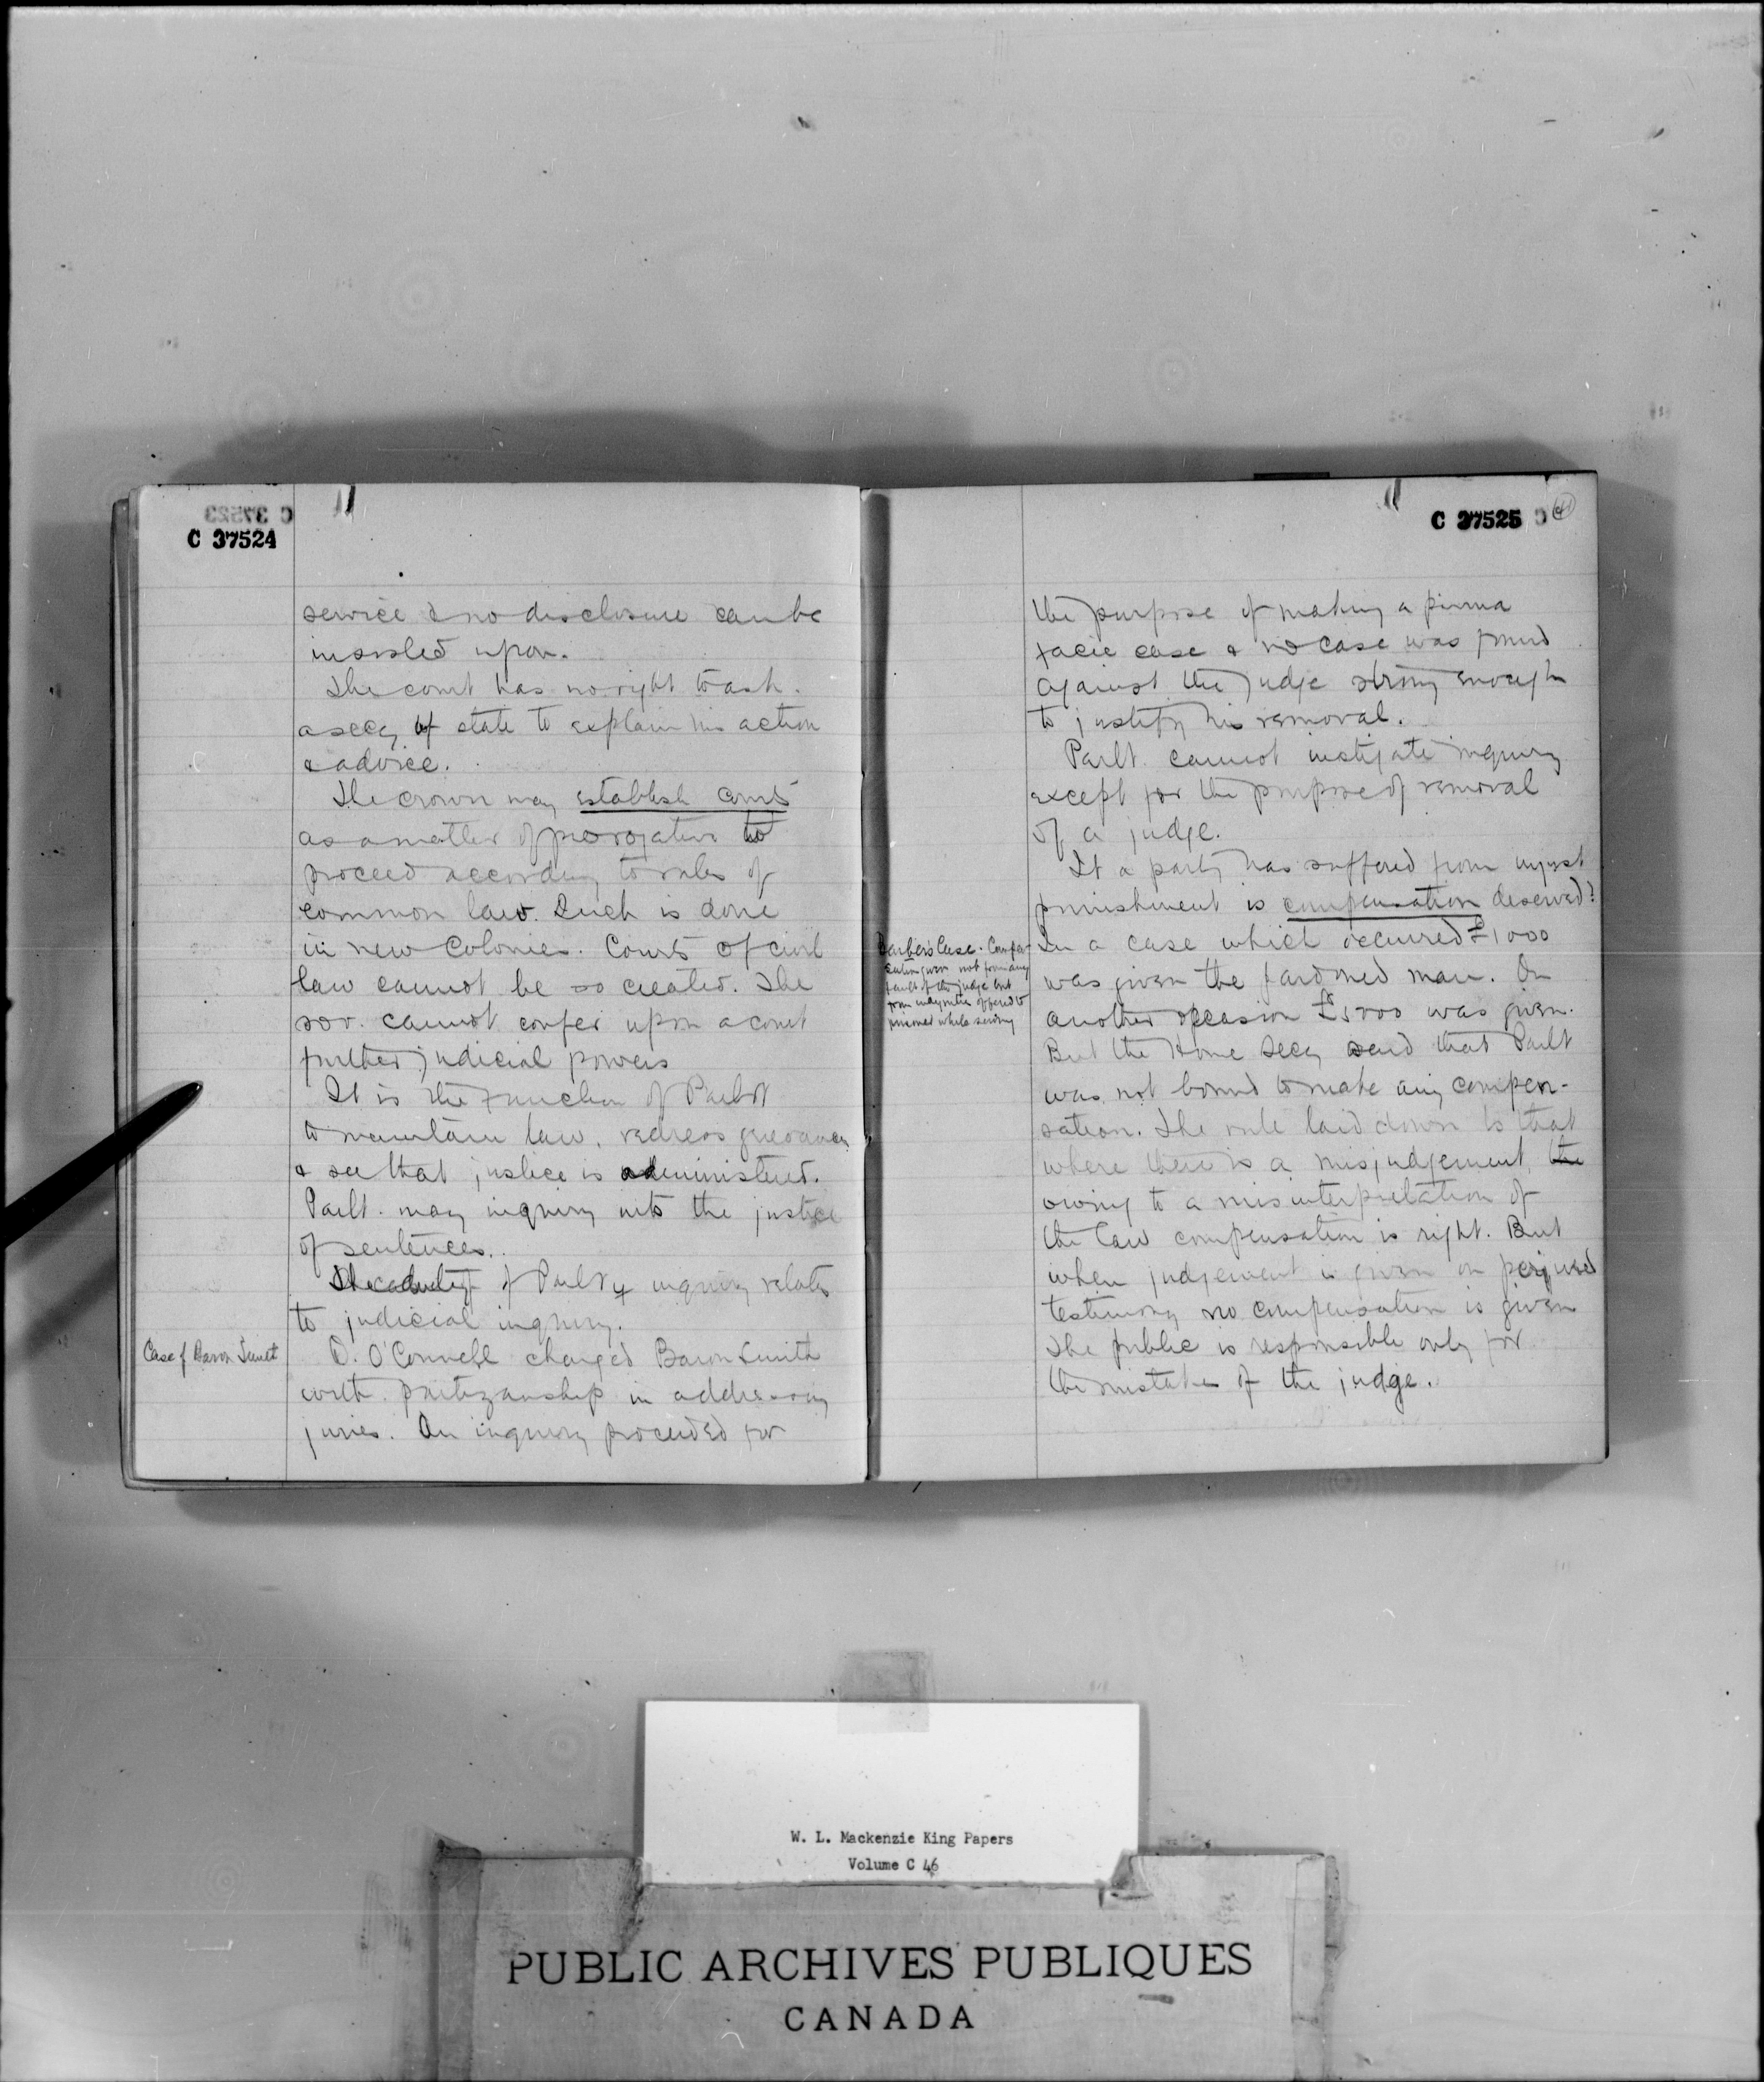 C 37523
C 37524
service & no disclosure can be
insisted upon.
The court has no right to ask
a secy of state to explain his action
& advice.
The crown may establish courts
as a matter of prerogative to
proceed according to rules of
common law. Such is done
in new Colonies. Courts of civil
law cannot be so created. The
sov. cannot confer upon a court
further judicial powers
It is the function of Parlt
to maintain law, redress grievances
& see that justice is administered.
Parlt. may inquiry into the justice
of sentences.
of Parlt inquiry relates
to judicial inquiry.
Case of Baron Smith
D. O'Connell charged Baron Smith
with partizanship in addressing
juries. An inquiry proceeded for
C 37525
the purpose of making a prima
facie case & no case was found
against the judge strong enough
to justify his removal.
Parlt. cannot instigate inquiry
except for the purpose of removal
of a judge.
If a party has suffered from unjust
punishment is compensation deserved?
Barber's Case. Compen-
sation given not from any
fault of the judge but
from offered to
prisoner while serving
In a case which occurred £1000
was given the pardoned man. On
another occasion £5000 was given.
But the Home Secy said that Parlt
was not bound to make any compen-
sation. The rule laid down is that
where there is a misjudgement, the
owing to a misinterpretation of
the law compensation is right. But
when judgement is given on perjured
testimony no compensation is given
The public is responsible only for
the mistakes of the judge.
W. L. Mackenzie King Papers
Volume C 46
PUBLIC ARCHIVES PUBLIQUES
CANADA